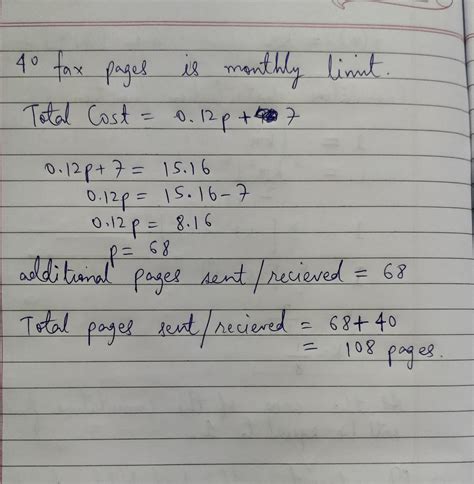 40 fax pages is monthly limit.
Total Cost = 0.12p + 7
0.12p + 7 = 15.16
0.12p = 15.16 - 7
0.12p = 8.16
p = 68
additional pages sent/recieved = 68
Total pages sent/recieved = 68 + 40
= 108 pages.